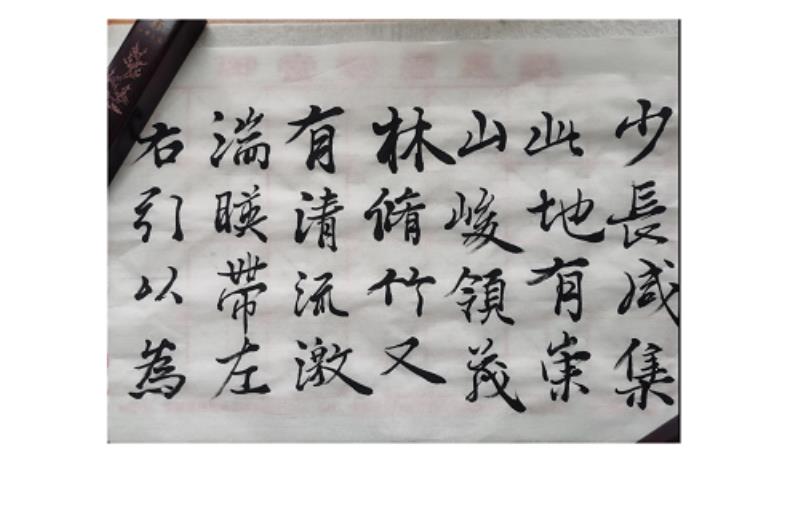 少長咸集
此地有崇
山峻領茂
林脩竹又
有清流激
湍暎帶左
右引以為